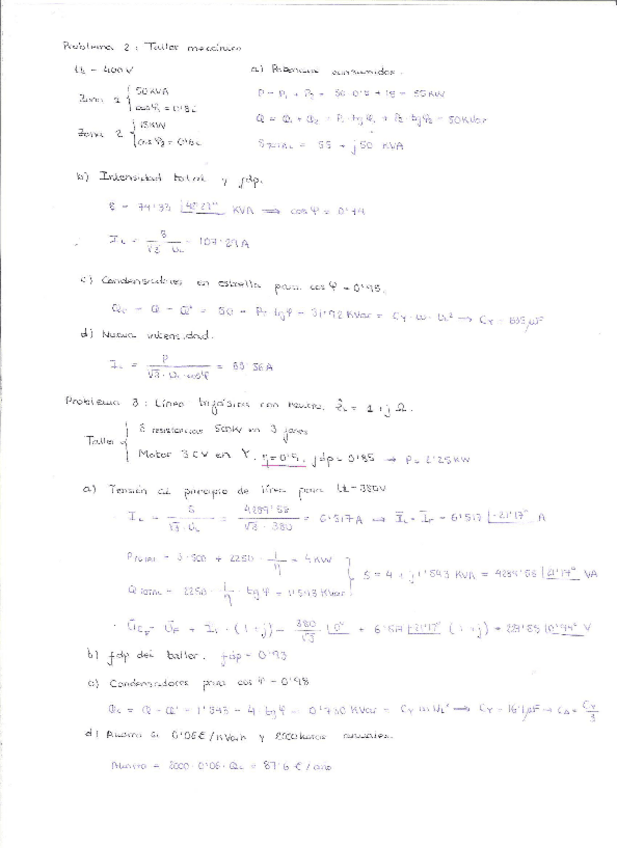 Problema 2: Taller mecánico
UL = 400V
a) Potencias consumidas.
Zona 1 { 50KVA
cosφ1 = 0'8i
P = P1 + P2 = 50·0'8 + 15 = 55 KW
Q = Q1 + Q2 = P1·tgφ1 + P2·tgφ2 = 50KVar
Zona 2 { 15KW
cosφ2 = 0'8c
STOTAL = 55 + j50 KVA
b) Intensidad total y fdp.
S = 74'33 |42'27° KVA ⟹ cosφ = 0'74
IL = S / √3 UL = 107'29A
c) Condensadores en estrella para cosφ = 0'95.
QC = Q - Q' = 50 - P·tgφ = 31'92 KVar = CY·ω·UL² → CY = 635μF
d) Nueva intensidad.
IL = P / √3·UL·cosφ = 83'56A
Problema 3: Línea trifásica con neutro. ZL = 1 + j Ω.
Taller { resistencias 500W en 3 fases
Motor 3CV en Y. η=0'5, fdp=0'85 → P=2'25KW
a) Tensión al principio de línea para UL=380V
IL = S / √3·UL = 4289'58 / √3·380 = 6'517A ⟹ IL = Ir = 6'517 |-21'17° A
PTOTAL = 3·500 + 2250·1/η = 4KW
QTOTAL = 2250·1/η·tgφ = 1'543 KVar } S = 4 + j1'543 KVA = 4289'58 |21'17° VA
UCF = UF + IL·(1+j) = 380/√3 |0° + 6'517 |-21'17° (1+j) = |0'94° V
b) fdp del taller. fdp = 0'93
c) Condensadores para cosφ = 0'98
QC = Q - Q' = 1'543 - 4·tgφ = 0'730 KVar = CY·ω·UL² ⟹ CY = 16'1μF → CΔ = CY/3
d) Ahorro si 0'06€/KVarh y horas anuales.
Ahorro = 2000·0'06·QC = 87'6 €/año